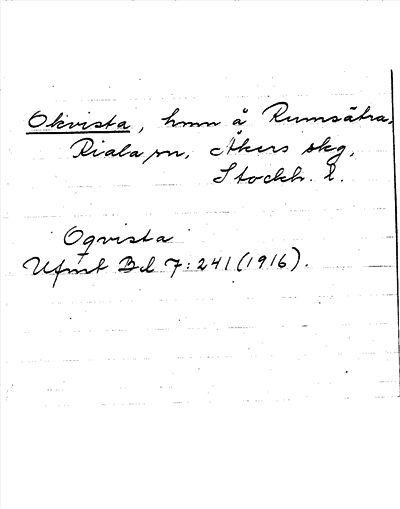 Okvista, hmn å Rumsätra,
Riala sn, Åkers skg,
Stockh. l.
Oqvista
Ufmt Bd 7:241(1916).